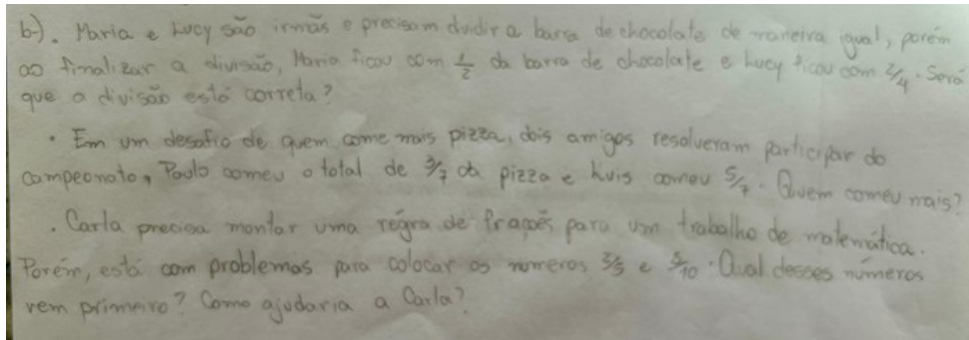 b-). Maria e Lucy são irmãs e precisam dividir a barra de chocolate de maneira igual, porém
ao finalizar a divisão, Maria ficou com 1/2 da barra de chocolate e Lucy ficou com 2/4. Será
que a divisão está correta?
· Em um desafio de quem come mais pizza, dois amigos resolveram participar do
campeonato, Paulo comeu o total de 3/7 da pizza e Luis comeu 5/7. Quem comeu mais?
. Carla precisa montar uma régra de frações para um trabalho de matemática.
Porém, está com problemas para colocar os números 3/5 e 3/10. Qual desses números
vem primeiro? Como ajudaria a Carla?